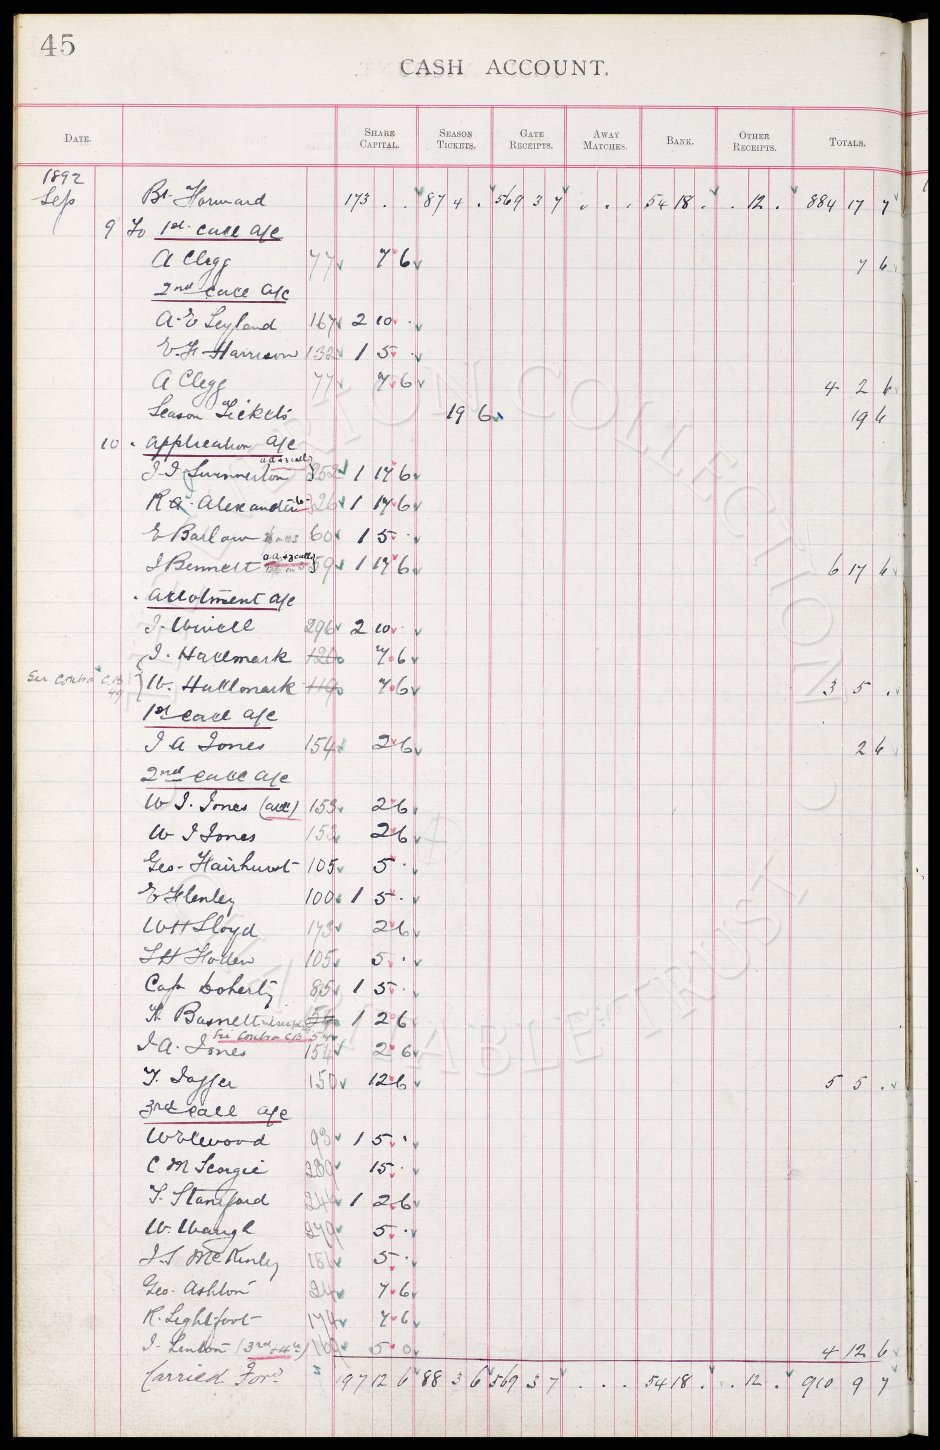 45
CASH ACCOUNT.
DATE. SHARE CAPITAL. SEASON TICKETS. GATE RECEIPTS. AWAY MATCHES. BANK. OTHER RECEIPTS. TOTALS.
1892
Sep Bt. Forward 173 . . 87 4 . 569 3 7 . . . 54 18 . . 12 . 884 17 7
9 To 1st call a/c
A Clegg 77 7 6 7 6
2nd call a/c
A. E Leyland 167 2 10 .
E. H. Harrison 132 1 5 .
A Clegg 77 7 6 4 2 6
Season Tickets 19 6 19 6
10 . Application a/c
J. J Swinnerton a a + 3 calls 352 1 17 6
R A. Alexander do 326 1 17 6
E Barlow 60 1 5 .
J Bennett a a + 3 calls 59 1 17 6 6 17 6
. Allotment a/c
296 2 10 .
J. Hallmark 120 7 6
See Contra C.B. 49 W. Hallmark 119 7 6 3 5 .
1st call a/c
J A Jones 154 2 6 2 6
2nd call a/c
W J. Jones (all) 153 2 6
W J Jones 153 2 6
Geo. Fairhurst 105 5 .
E Henley 100 1 5 .
W H Lloyd 173 2 6
105 5 .
Cap Doherty 85 1 5 .
H. Basnett 54 1 2 6
See Contra C.B. 54
J. A. Jones 154 2 6
T. Jagger 150 12 6 5 5 .
3rd call a/c
W Elwood 93 1 5 .
C M Scorgie 289 15 .
T. Staniford 249 1 2 6
W. Waugh 279 5 .
McKinley 151 5 .
Geo. Ashton 24 7 6
R. Lightfoot 174 7 6
J. Linton (3rd + 4th) 169 5 0 4 12 6
Carried Ford 197 12 6 88 3 6 569 3 7 . . . 54 18 . . 12 . 910 9 7
EVERTON COLLECTION CHARITABLE TRUST